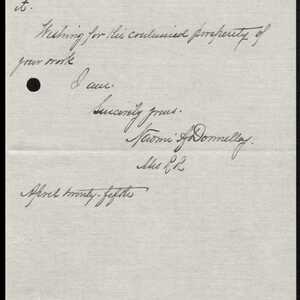 it.
Wishing for the continued prosperity of
your work
I am.
Sincerely yours.
Naomi Donnelley.
Mrs R R
April twenty-fifth